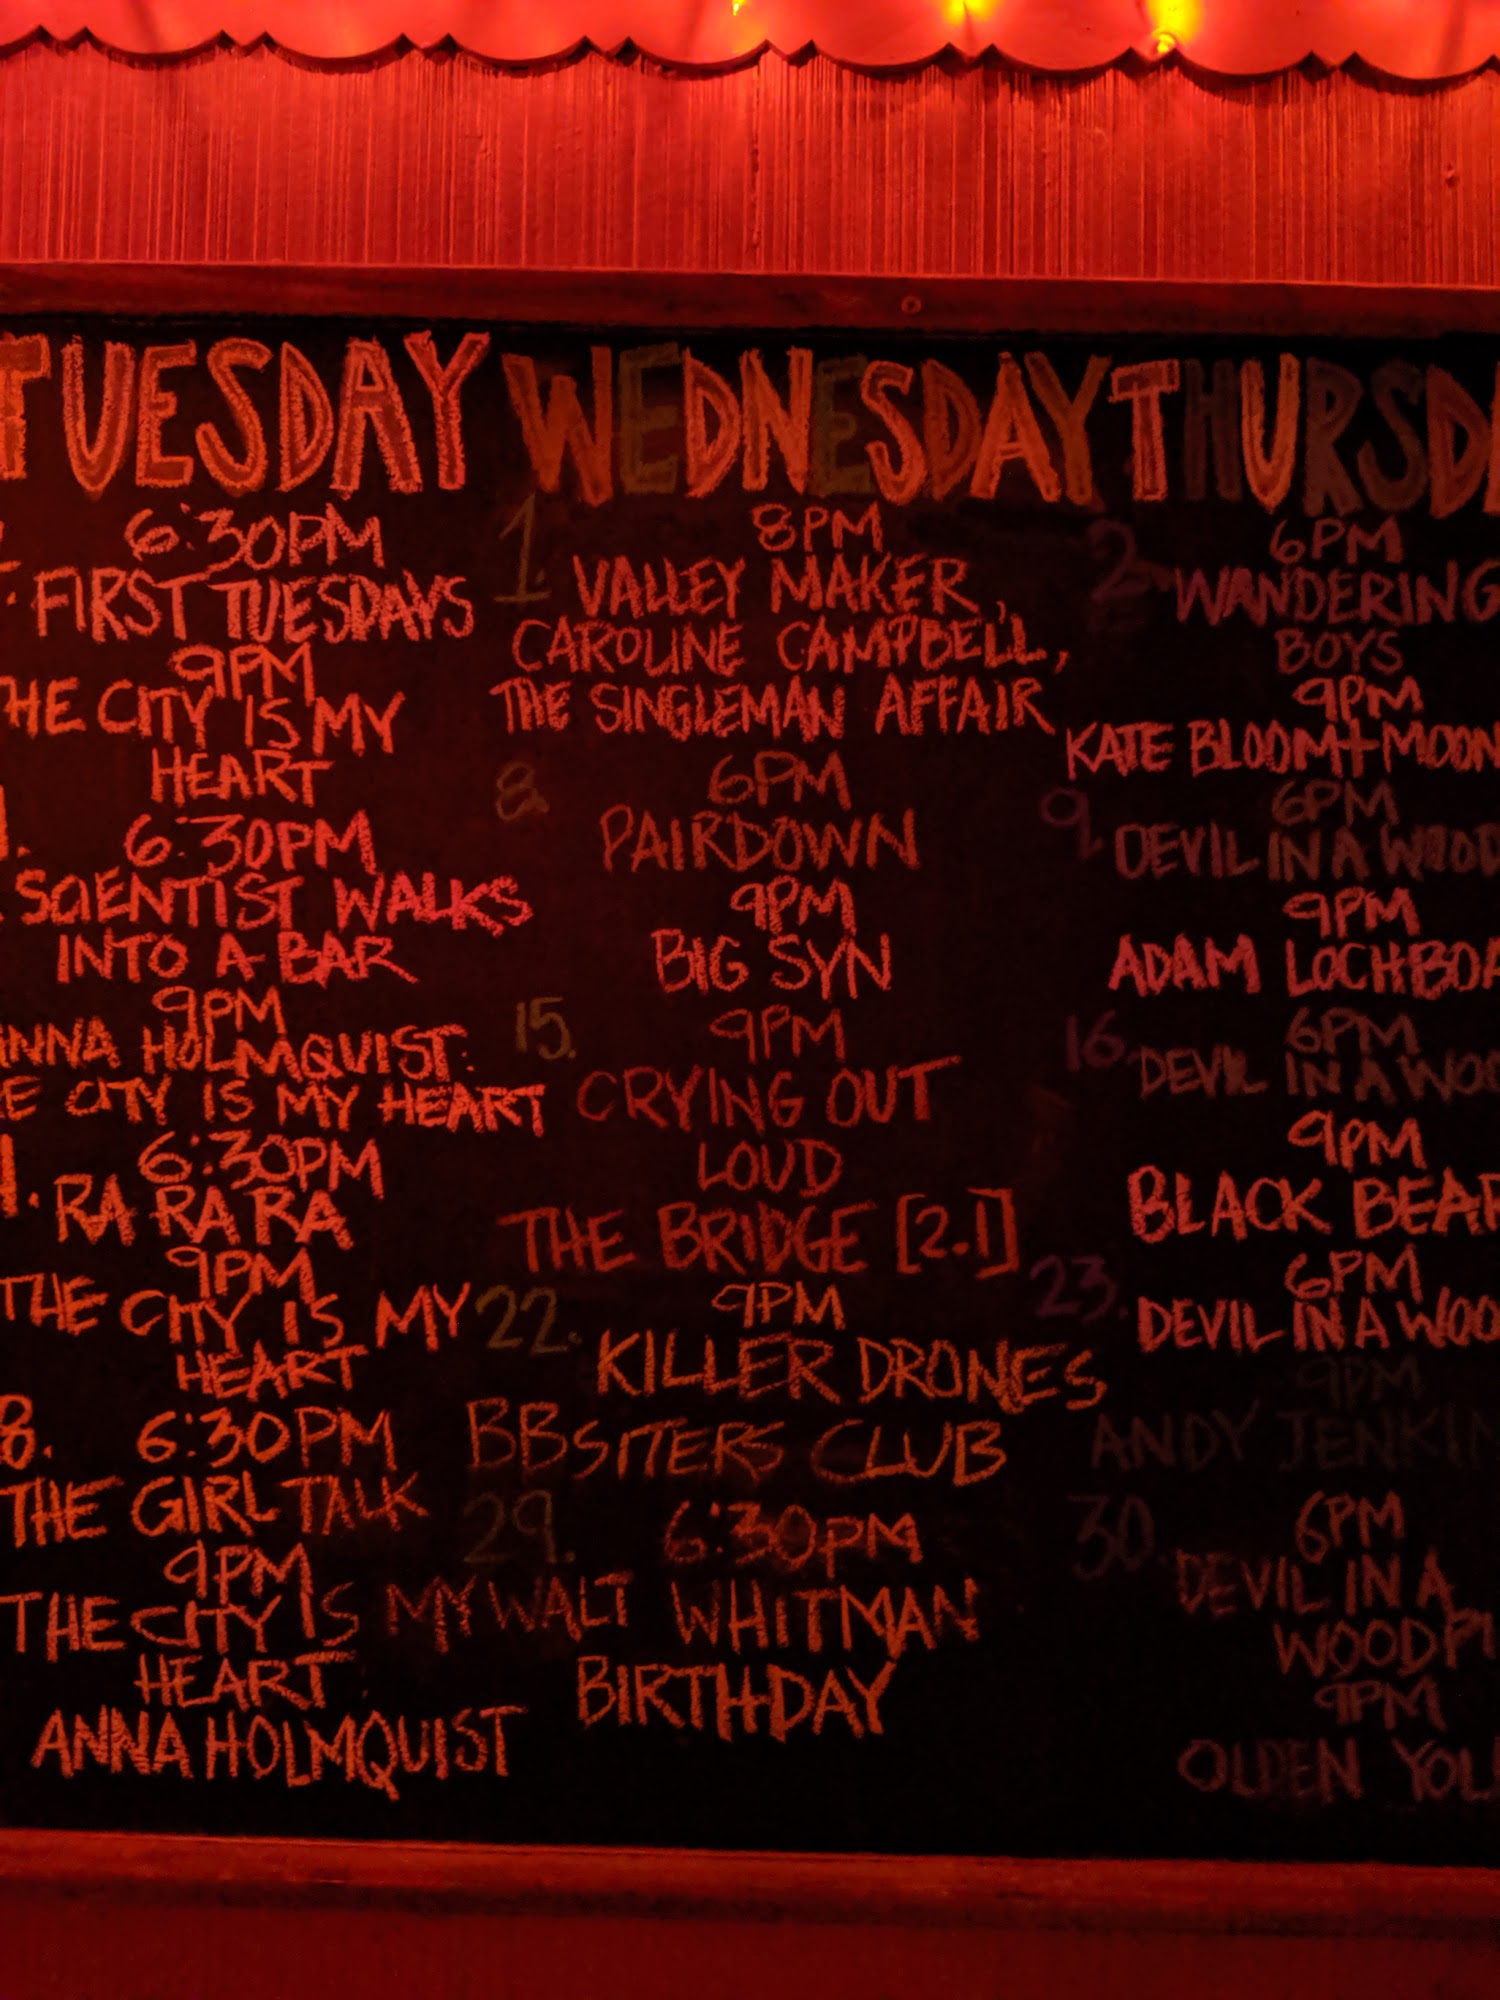 TUESDAY
6:30PM
FIRST TUESDAYS
9PM
THE CITY IS MY
HEART
6:30PM
SCIENTIST WALKS
INTO A BAR
9PM
NNA HOLMQUIST:
E CITY IS MY HEART
6:30PM
RA RA RA
9PM
THE CITY IS MY
HEART
8. 6:30PM
THE GIRL TALK
9PM
THE CITY IS MY
HEART
ANNA HOLMQUIST
WEDNESDAY
1. 8PM
VALLEY MAKER,
CAROLINE CAMPBELL,
THE SINGLEMAN AFFAIR
8. 6PM
PAIRDOWN
9PM
BIG SYN
15. 9PM
CRYING OUT
LOUD
THE BRIDGE [2.1]
22. 9PM
KILLER DRONES
BBSITERS CLUB
29. 6:30PM
WALT WHITMAN
BIRTHDAY
THURSDA
2. 6PM
WANDERING
BOYS
9PM
KATE BLOOM + MOON
9. 6PM
DEVIL IN A WOOD
9PM
ADAM LOCHBOA
16. 6PM
DEVIL IN A WOO
9PM
BLACK BEAR
23. 6PM
DEVIL IN A WOO
9PM
ANDY JENKIN
30. 6PM
DEVIL IN A
WOODPI
9PM
OLDEN YOL